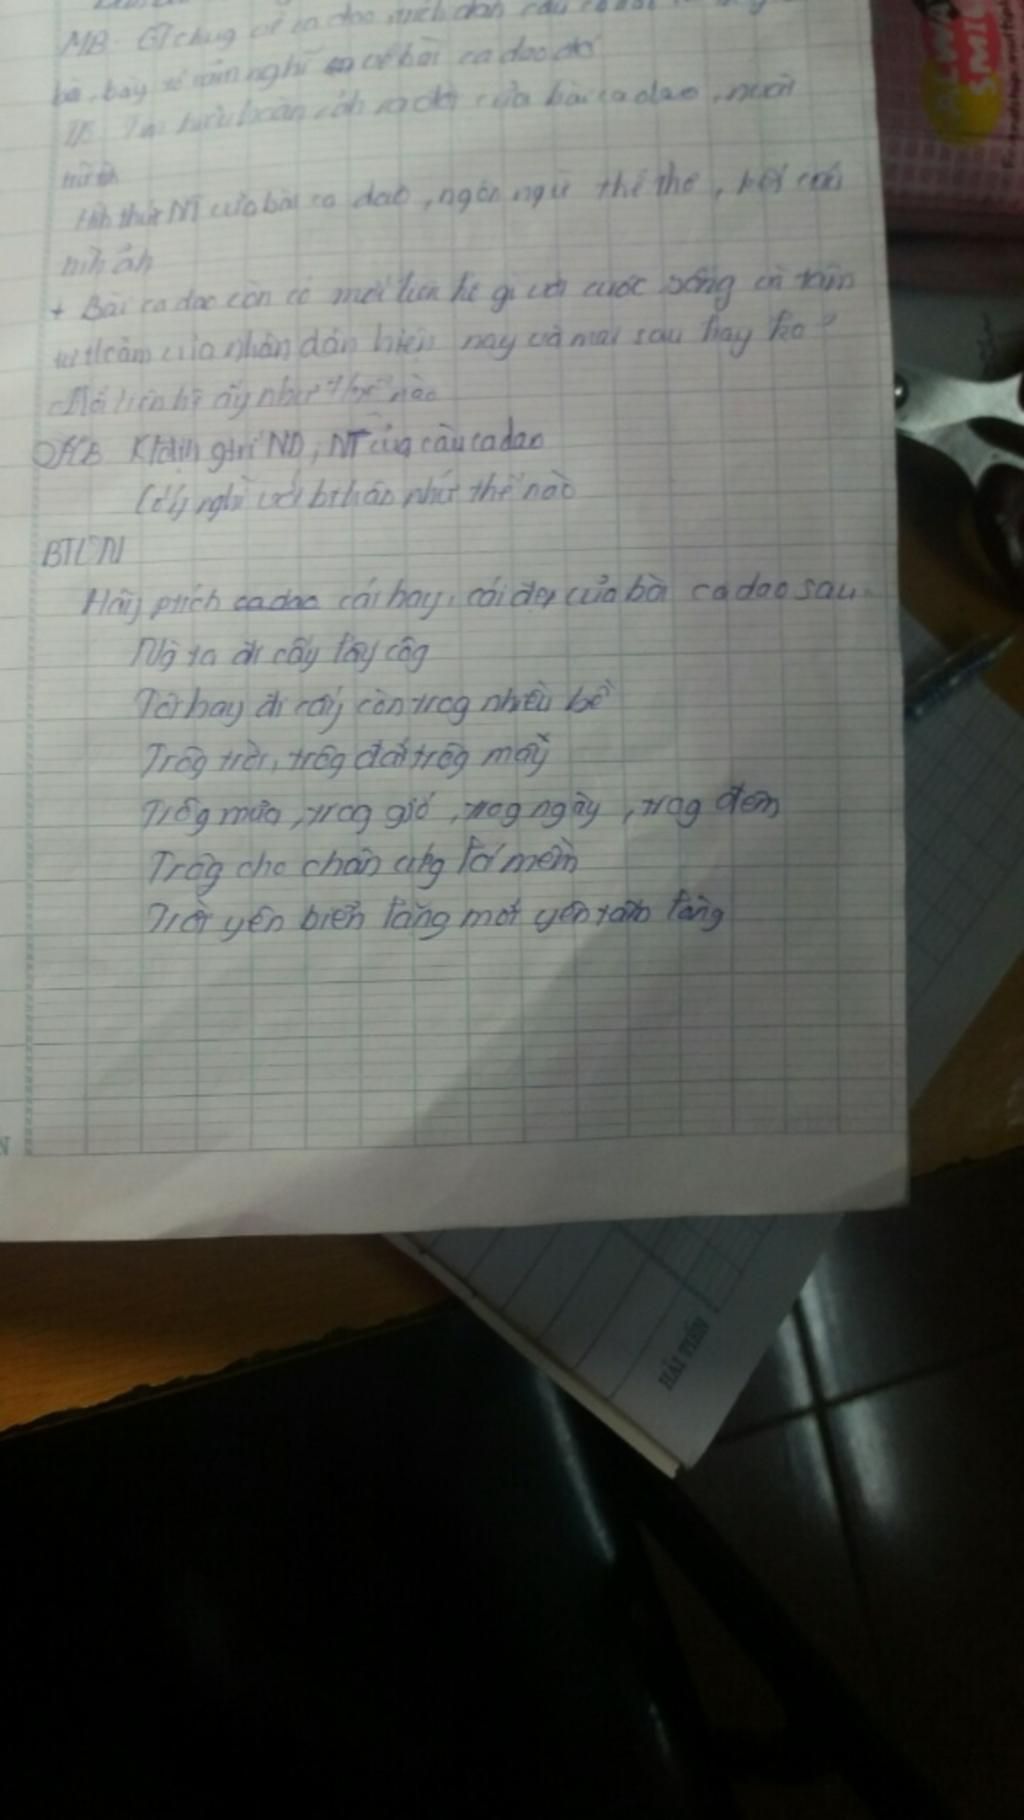 MB. GT chug về ca dao, trích dẫn câu ca dao
bà, bày tỏ cảm nghĩ về bài ca dao đó
TB Tìm hiểu hoàn cảnh ra đời của bài ca dao, mười
Hình thức NT của bài ca dao, ngôn ngữ thể thơ, kết cấu
hình ảnh
+ Bài ca dao còn có mối liên hệ gì với cuộc sống và tâm
tư t/cảm của nhân dân hiện nay và mai sau hay ko?
Mối liên hệ ấy như thế nào
KB K/định gtrị ND, NT của câu ca dao
nghĩ với bthân như thế nào
BTVN
Hãy ptích ca dao cái hay, cái đẹp của bài ca dao sau
Ng ta đi cấy lấy côg
Tôi nay đi cấy còn trôg nhiều bề
Trôg trời, trôg đất, trôg mây
Trôg mưa, trog gió, trog ngày, trog đêm
Trôg cho chân cứng đá mềm
Trời yên biển lặng mới yên tấm lòng
HẢI TIẾN
ALWAY
SMILE
N